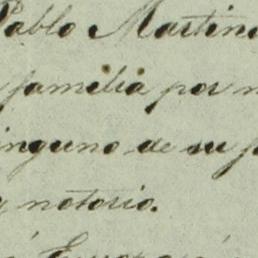 Pablo Martine
familia por
inguno de su
y notorio.